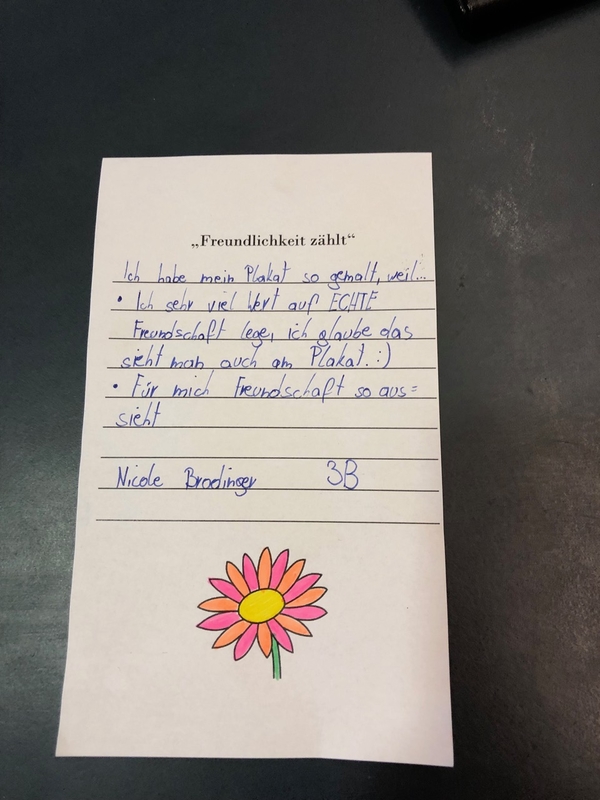 „Freundlichkeit zählt“
Ich habe mein Plakat so gemalt, weil...
• Ich sehr viel Wert auf ECHTE
Freundschaft lege, ich glaube das
sieht man auch am Plakat. :)
• Für mich Freundschaft so aus=
sieht
Nicole Brodinger 3B